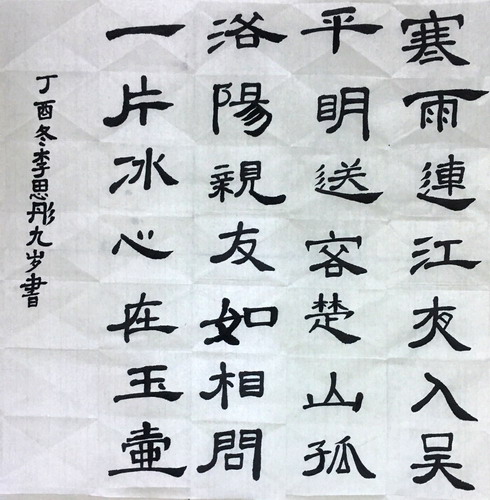 寒雨連江夜入吴
平明送客楚山孤
洛陽親友如相問
一片冰心在玉壷
丁酉冬李思彤九岁書